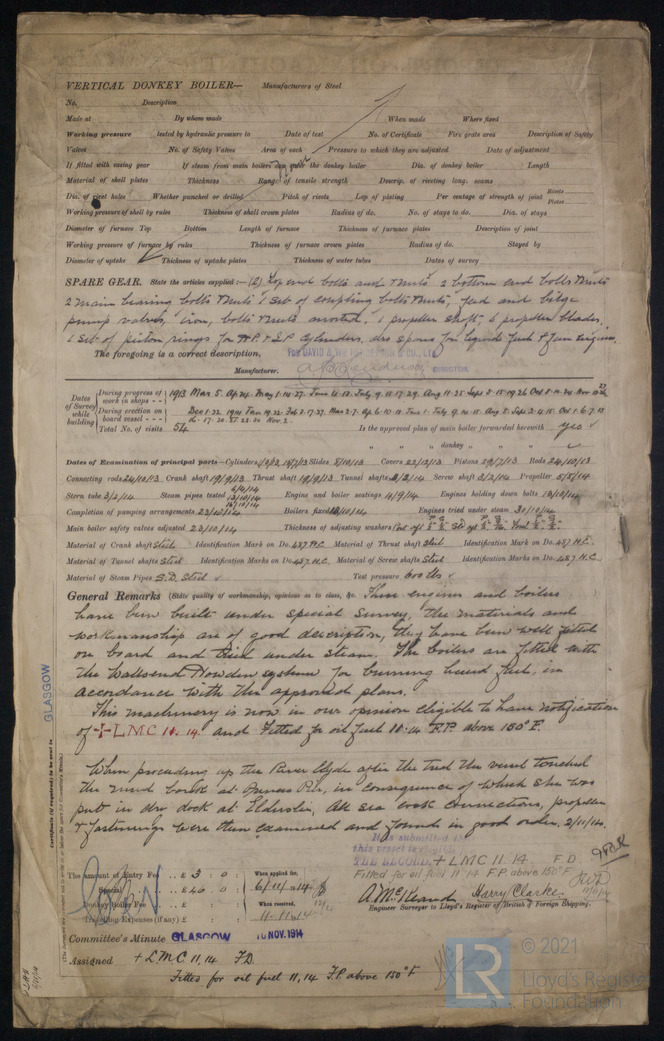 VERTICAL DONKEY BOILER— Manufacturers of Steel
No. Description
Made at By whom made When made Where fixed
Working pressure tested by hydraulic pressure to Date of test No. of Certificate Fire grate area Description of Safety
Valves No. of Safety Valves Area of each Pressure to which they are adjusted Date of adjustment
If fitted with easing gear If steam from main boilers can enter the donkey boiler Dia. of donkey boiler Length
Material of shell plates Thickness Range of tensile strength Descrip. of riveting long. seams
Dia. of rivet holes Whether punched or drilled Pitch of rivets Lap of plating Per centage of strength of joint Rivets Plates
Working pressure of shell by rules Thickness of shell crown plates Radius of do. No. of stays to do. Dia. of stays
Diameter of furnace Top Bottom Length of furnace Thickness of furnace plates Description of joint
Working pressure of furnace by rules Thickness of furnace crown plates Radius of do. Stayed by
Diameter of uptake Thickness of uptake plates Thickness of water tubes Dates of survey
SPARE GEAR. State the articles supplied:— (2) Top end bolts and nuts 2 bottom end bolts & nuts
2 main bearing bolts & nuts 1 set of coupling bolts & nuts, feed and bilge
pump valves, iron, bolts & nuts assorted, 1 propeller shaft, 6 propeller blades,
1 set of piston rings for HP & LP Cylinders, also spares for liquid fuel & fan engines.
The foregoing is a correct description,
Manufacturer.
Dates of Survey while building
During progress of work in shops - - 1913 Mar 5. Ap 24. May 1.14.27. June 4.13. July 9.15.17.29. Aug 11.25. Sept 2.15.19.26 Oct 8.10.24. Nov
During erection on board vessel - - - Dec 1.22. 1914 Jan 19.22. Feb 2.17.27. Mar 2.7. Ap 6.10.13 June 1. July 9.14.15. Aug 2. Sept 2.4.15. Oct 1.6.7.13
Nov 2.
Total No. of visits 54 Is the approved plan of main boiler forwarded herewith yes
" " " donkey " "
Dates of Examination of principal parts—Cylinders Slides 8/10/13 Covers 22/12/13 Pistons 29/7/13 Rods 24/10/13
Connecting rods 24/10/13 Crank shaft 19/9/13 Thrust shaft 19/9/13 Tunnel shafts Screw shaft 3/2/14 Propeller 5/5/14
Stern tube 3/2/14 Steam pipes tested Engine and boiler seatings 4/9/14 Engines holding down bolts 13/10/14
Completion of pumping arrangements 23/10/14 Boilers fixed 13/10/14 Engines tried under steam 30/10/14
Main boiler safety valves adjusted 23/10/14 Thickness of adjusting washers
Material of Crank shaft Steel Identification Mark on Do. 487 H.C Material of Thrust shaft Steel Identification Mark on Do. 487 H.C
Material of Tunnel shafts Steel Identification Marks on Do. 487 H.C Material of Screw shafts Steel Identification Marks on Do. 487 H.C
Material of Steam Pipes S.D. Steel Test pressure 600 lbs
General Remarks (State quality of workmanship, opinions as to class, &c. These engines and boilers
have been built under special Survey, the materials and
workmanship are of good description, they have been well fitted
on board and tried under steam. The boilers are fitted with
the Wallsend Howden system for burning liquid fuel, in
accordance with the approved plans.
This machinery is now in our opinion eligible to have notification
of +LMC 11.14. and Fitted for oil fuel 11.14 F.P. above 150°F.
When proceeding up the River Clyde after the trial the vessel touched
the mud bank at Princes Pier, in consequence of which she was
put in dry dock at Elderslie, All sea cock connections, propeller
& fastenings were then examined and found in good order. 2/11/14.
It is submitted that
this vessel is eligible
THE RECORD. + LMC 11.14. F.D.
Fitted for oil fuel 11.14 F.P. above 150°F.
The amount of Entry Fee .. £ 3 : 0 : When applied for,
Special .. £ 40 : 0 : 6/11/1914
Donkey Boiler Fee .. £ When received,
Travelling Expenses (if any) £ 11.11.14
A. McKeand Harry Clarke
Engineer Surveyor to Lloyd's Register of British & Foreign Shipping.
Committee's Minute GLASGOW 10 NOV. 1914
Assigned + LMC 11,14 F.D.
Fitted for oil fuel 11,14 F.P. above 150°F
GLASGOW
Certificate (if required) to be sent to
LR
© 2021
Lloyd's Register
Foundation